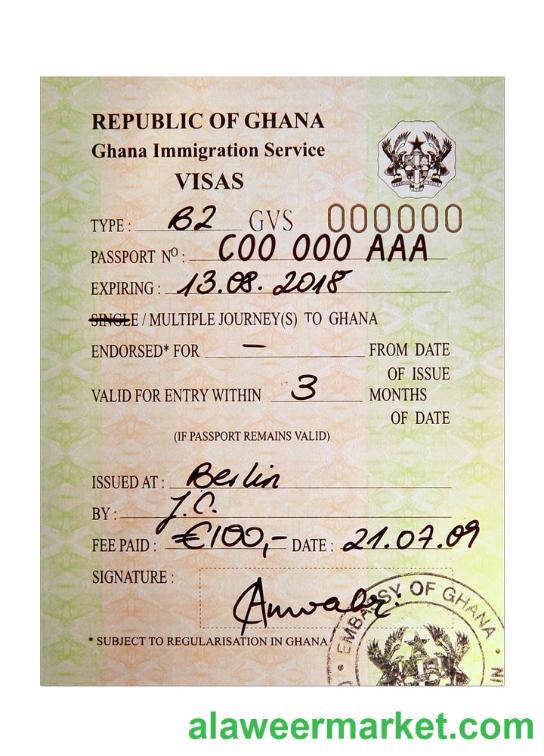 REPUBLIC OF GHANA
Ghana Immigration Service
VISAS
TYPE : B2 GVS 000000
PASSPORT Nº : C00 000 AAA
EXPIRING : 13.08.2018
SINGLE / MULTIPLE JOURNEY(S) TO GHANA
ENDORSED* FOR — FROM DATE
OF ISSUE
VALID FOR ENTRY WITHIN 3 MONTHS
OF DATE
(IF PASSPORT REMAINS VALID)
ISSUED AT : Berlin
BY : J.C.
FEE PAID : €100,- DATE : 21.07.09
SIGNATURE :
* SUBJECT TO REGULARISATION IN GHANA
EMBASSY OF GHANA
alaweermarket.com